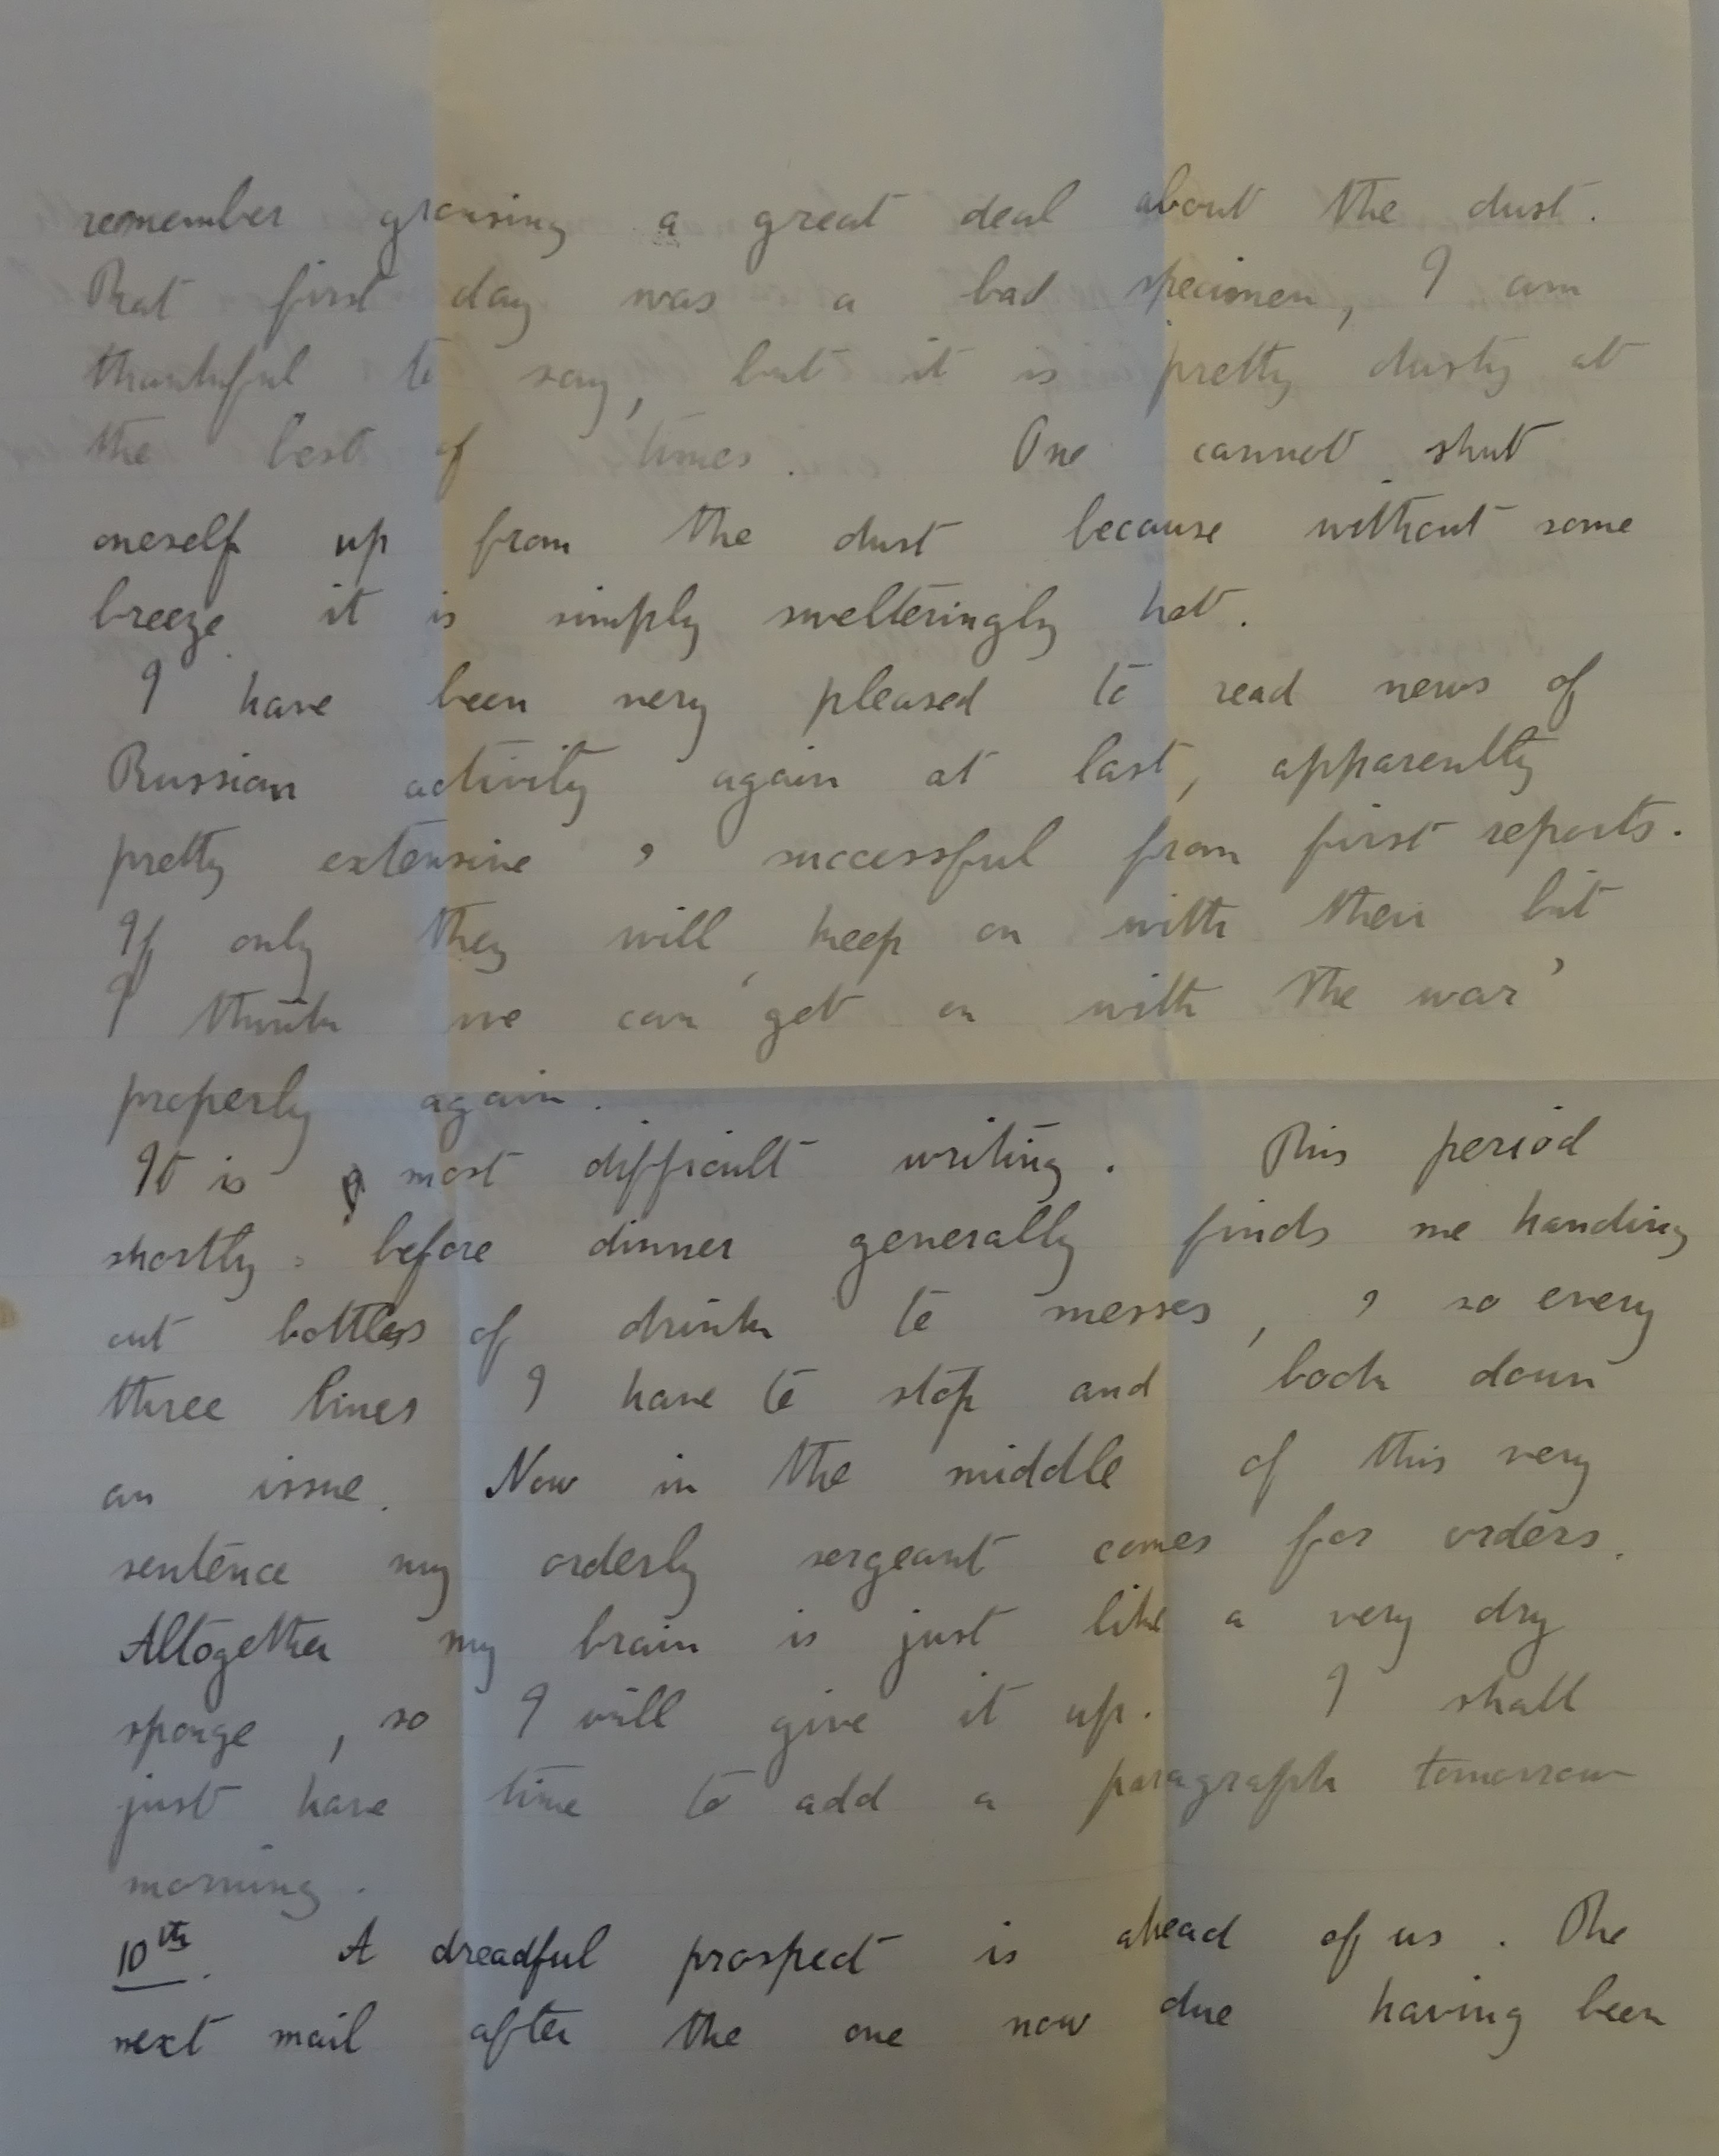 remember grousing a great deal about the dust.
That first day was a bad specimen, I am
thankful to say, but it is pretty dusty at
the best of times. One cannot shut
oneself up from the dust because without some
breeze it is simply swelteringly hot.
I have been very pleased to read news of
Russian activity again at last, apparently
pretty extensive & successful from first reports.
If only they will keep on with their bit
I think we can 'get on with the war'
properly again.
It is most difficult writing. This period
shortly before dinner generally finds me handing
out bottles of drink to messes, & so every
three lines I have to stop and book down
an issue. Now in the middle of this very
sentence my orderly sergeant comes for orders.
Altogether my brain is just like a very dry
sponge, so I will give it up. I shall
just have time to add a paragraph tomorrow
morning.
10th. A dreadful prospect is ahead of us. The
next mail after the one now due having been